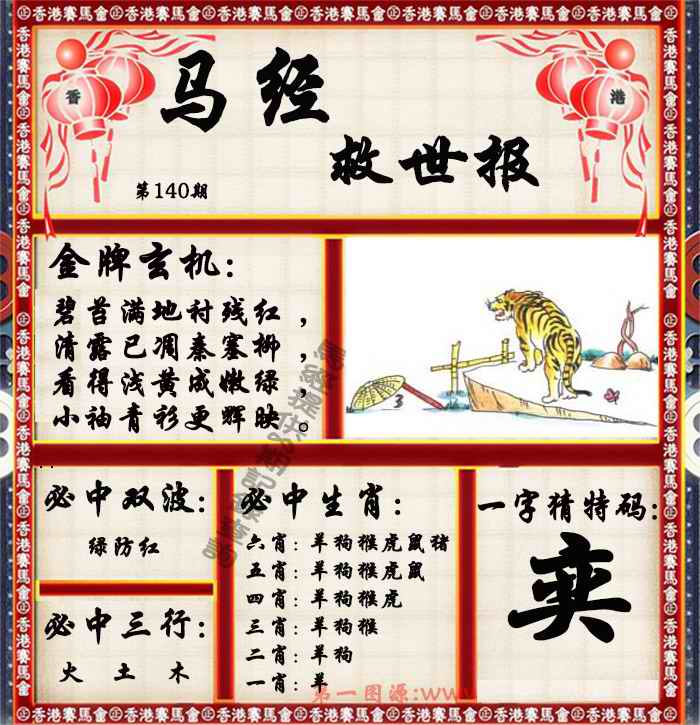 香港賽馬會
香 港
马经
救世报
第140期
金牌玄机：
碧苔满地衬残红，
清露已凋秦塞柳，
看得浅黄成嫩绿，
小袖青衫更辉映。
3
必中双波：
绿防红
必中三行：
火 土 木
必中生肖：
六肖：羊狗猴虎鼠猪
五肖：羊狗猴虎鼠
四肖：羊狗猴虎
三肖：羊狗猴
二肖：羊狗
一肖：羊
一字猜特码：
奕
第一图源:www